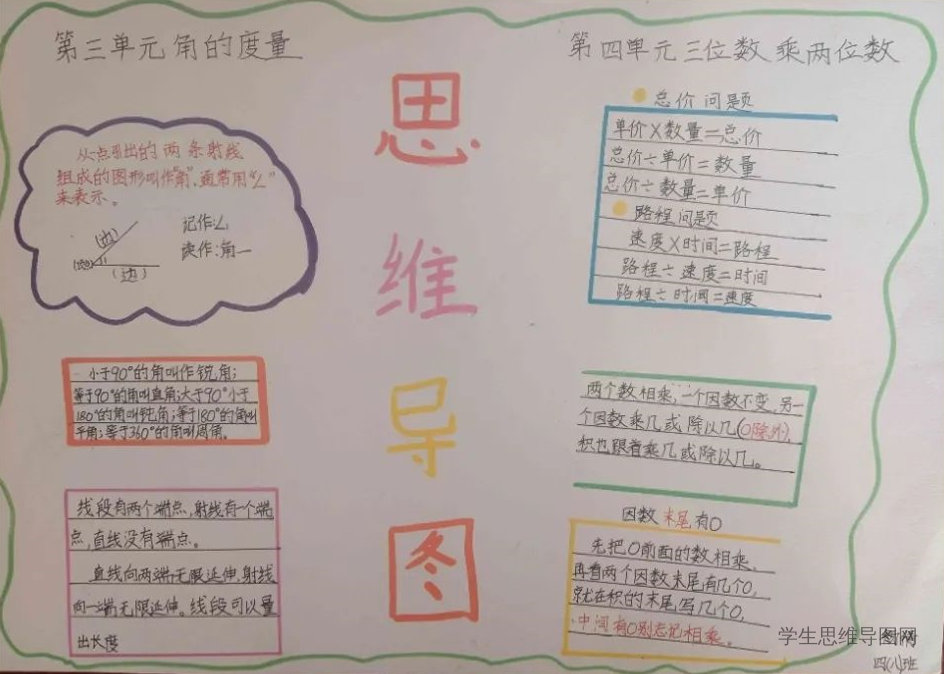 第三单元角的度量
从一点引出的两条射线
组成的图形叫作"角",通常用"∠"
来表示。
(边)
记作:∠1
读作:角一
(边)
小于90°的角叫作锐角;
等于90°的角叫直角;大于90°小于
180°的角叫钝角;等于180°的角叫
平角;等于360°的角叫周角。
线段有两个端点,射线有一个端
点,直线没有端点。
直线向两端无限延伸,射线
向一端无限延伸。线段可以量
出长度
思
维
导
图
第四单元三位数乘两位数
总价问题
单价×数量=总价
总价÷单价=数量
总价÷数量=单价
路程问题
速度×时间=路程
路程÷速度=时间
路程÷时间=速度
两个数相乘,一个因数不变,另一
个因数乘几或除以几(0除外),
积也跟着乘几或除以几。
因数末尾有0
先把0前面的数相乘,
再看两个因数末尾有几个0,
就在积的末尾写几个0,
中间有0别忘记相乘。
学生思维导图网